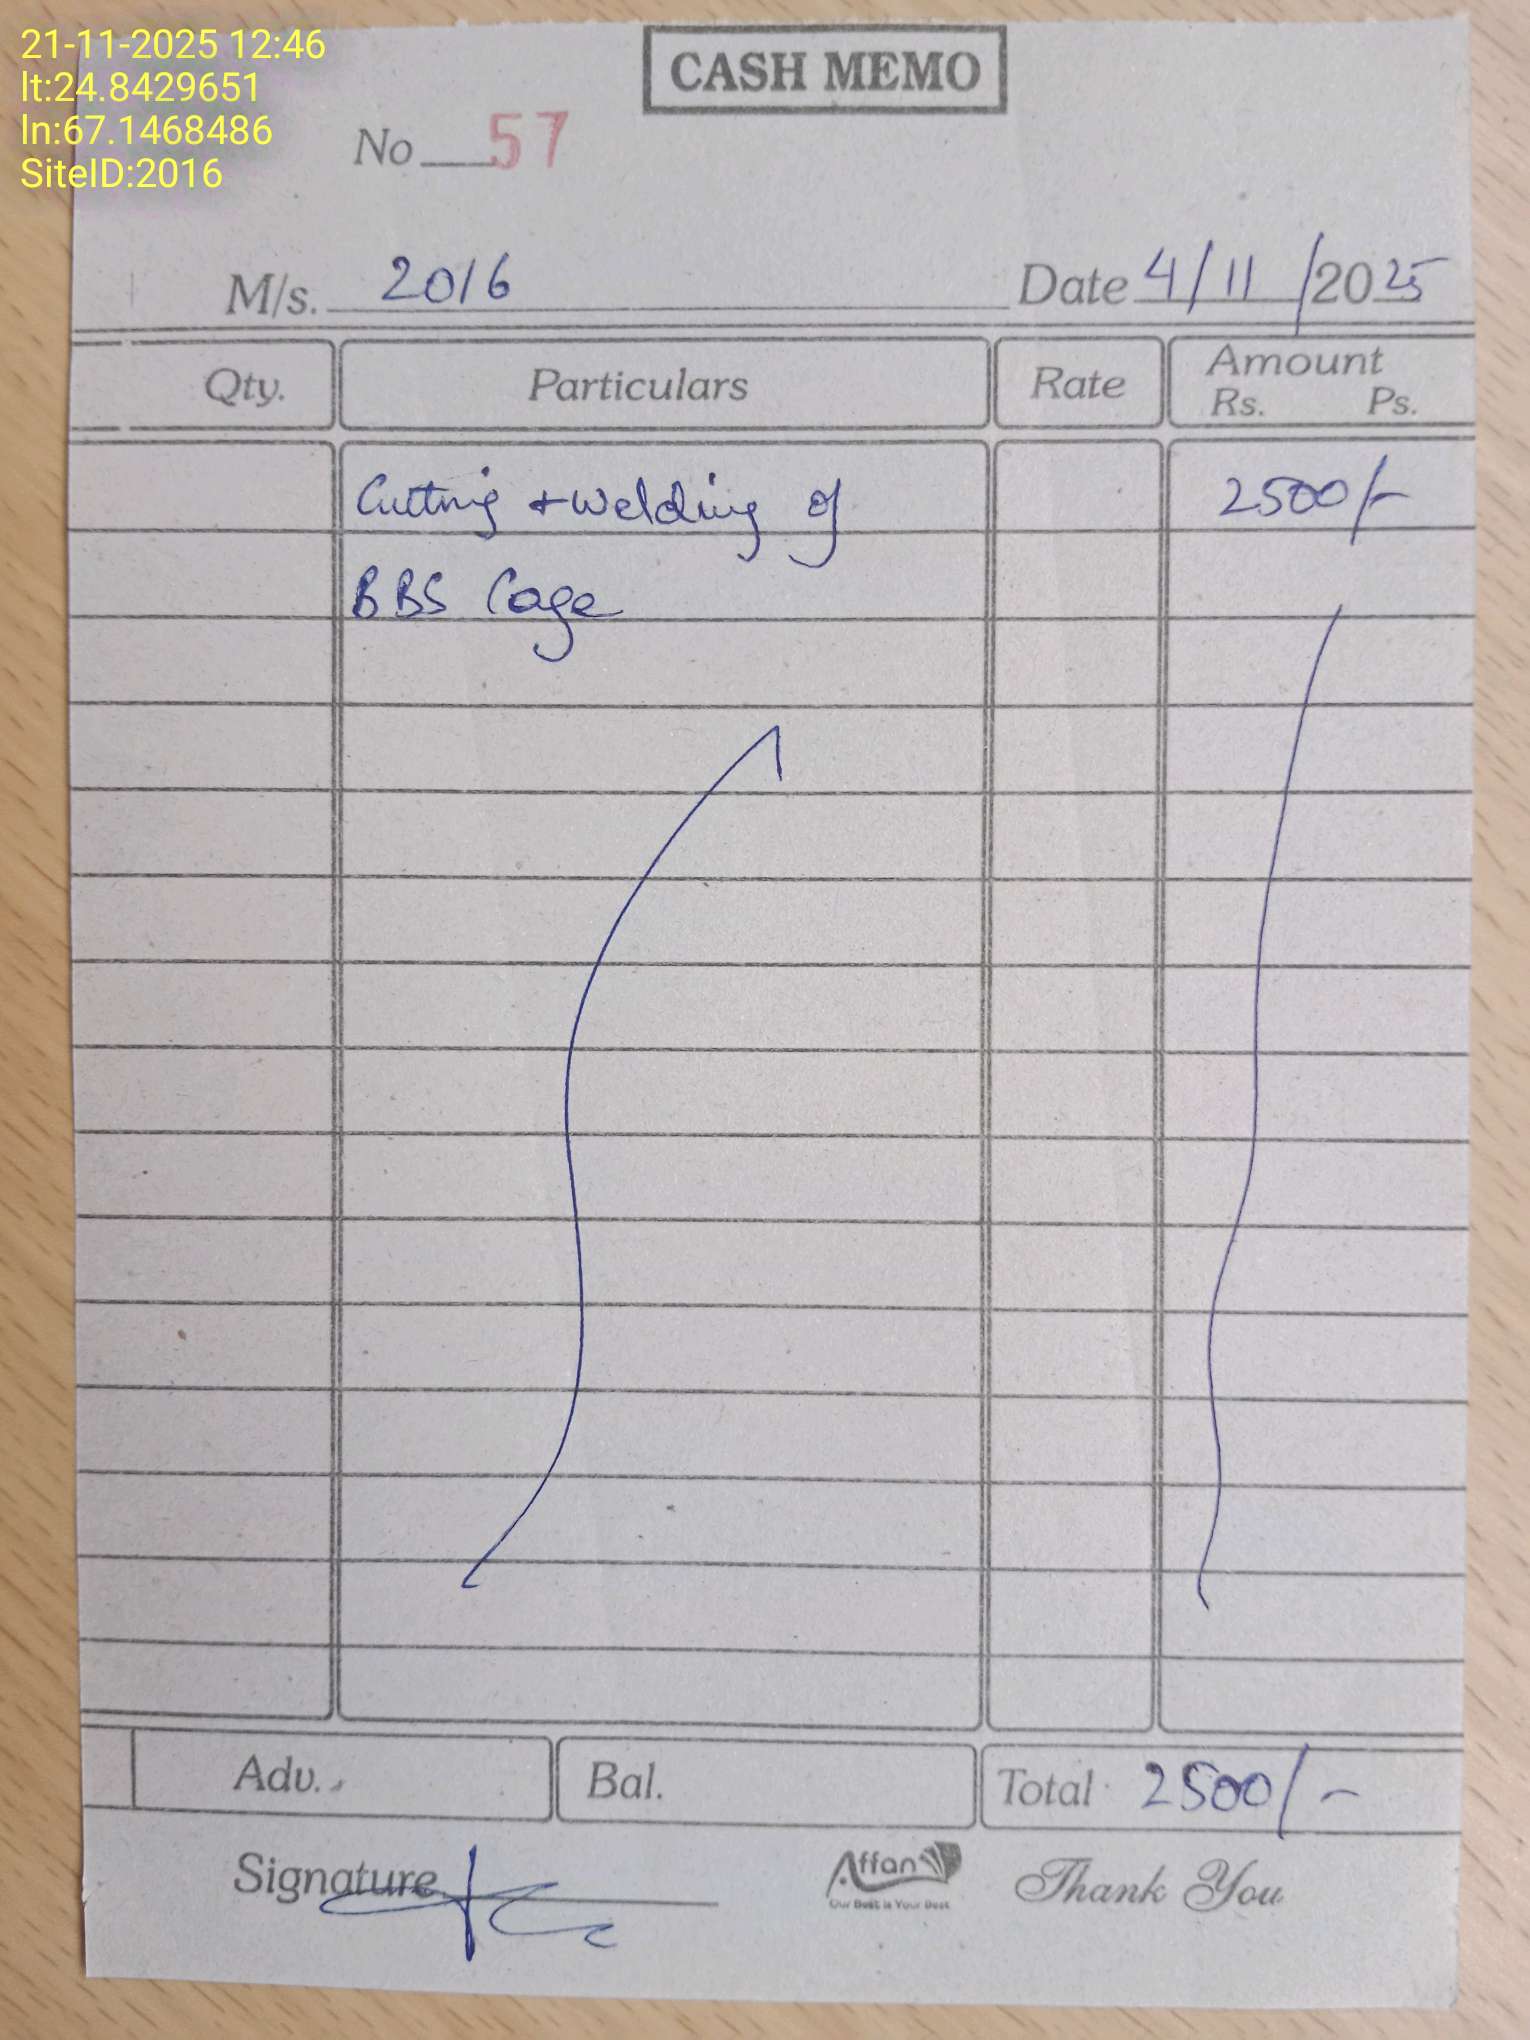 21-11-2025 12:46
lt:24.8429651
ln:67.1468486
SiteID:2016
CASH MEMO
No 57
M/s. 2016 Date 4/11/2025
Qty. Particulars Rate Amount
Rs. Ps.
Cutting + Welding of 2500/-
BBS Cage
Adv. Bal. Total 2500/-
Signature
Affan
Our Best is Your Best
Thank You